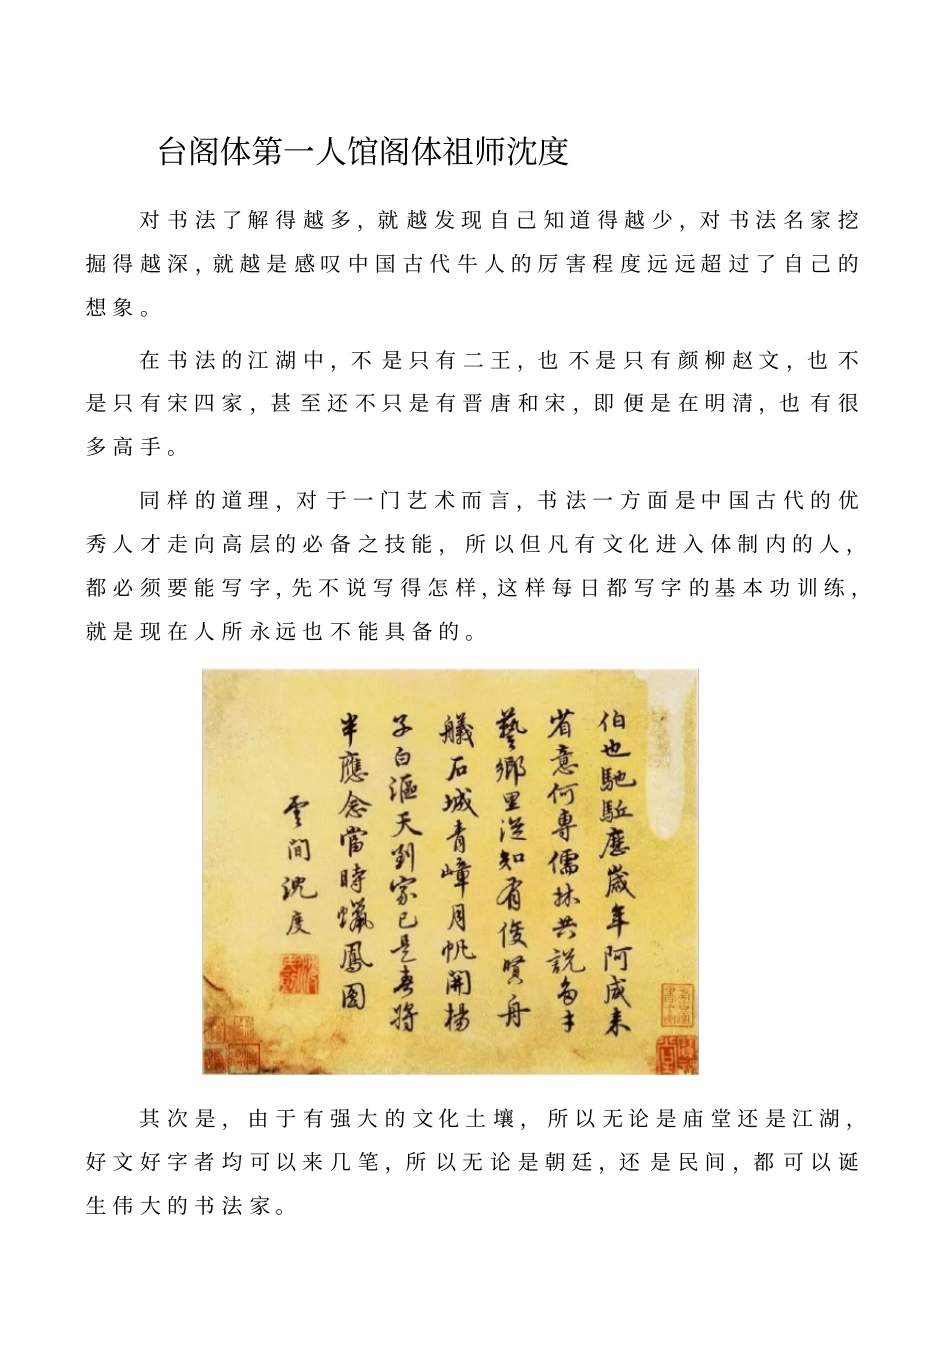 台阁体第一人馆阁体祖师沈度
对书法了解得越多，就越发现自己知道得越少，对书法名家挖
掘得越深，就越是感叹中国古代牛人的厉害程度远远超过了自己的
想象。
在书法的江湖中，不是只有二王，也不是只有颜柳赵文，也不
是只有宋四家，甚至还不只是有晋唐和宋，即便是在明清，也有很
多高手。
同样的道理，对于一门艺术而言，书法一方面是中国古代的优
秀人才走向高层的必备之技能，所以但凡有文化进入体制内的人，
都必须要能写字，先不说写得怎样，这样每日都写字的基本功训练，
就是现在人所永远也不能具备的。
伯也馳駈應歲年阿咸来
省意何専儒林共説多才
藝鄉里從知有俊賢舟
艤石城青嶂月帆開楊
子白漚天到家已是春将
半應念當時蠟鳳圓
雲間沈度
其次是，由于有强大的文化土壤，所以无论是庙堂还是江湖，
好文好字者均可以来几笔，所以无论是朝廷，还是民间，都可以诞
生伟大的书法家。